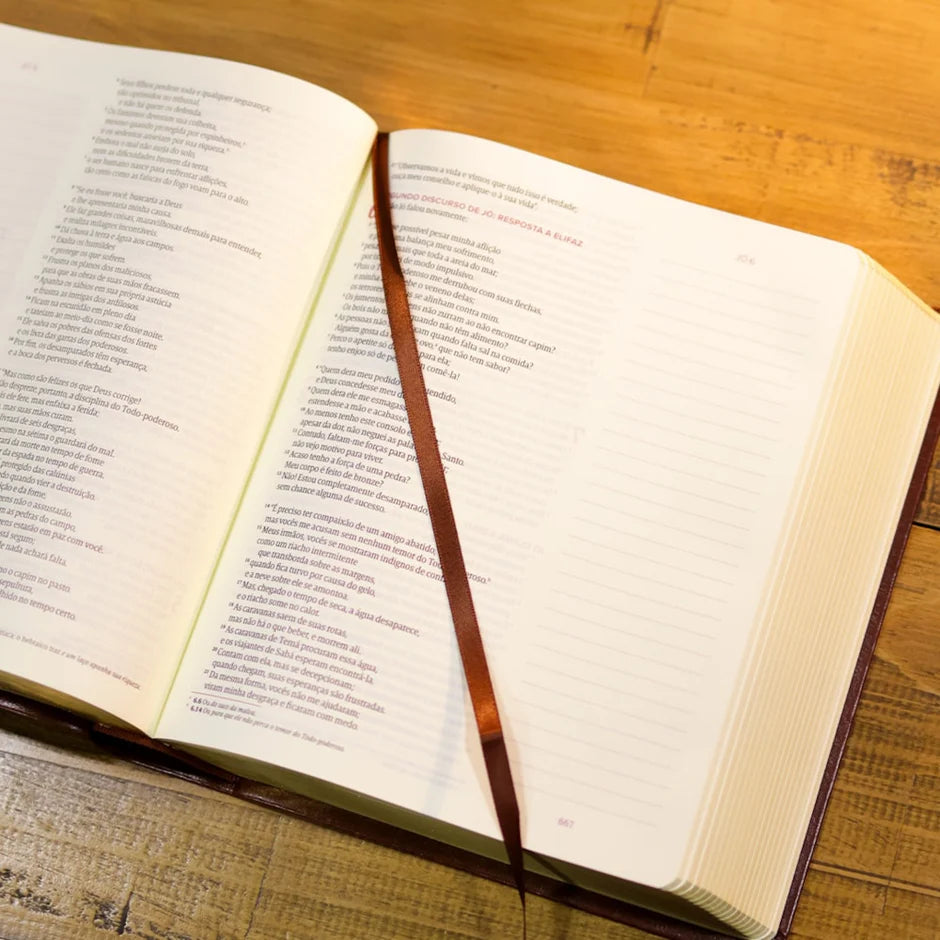 ⁴ Seus filhos perdem toda e qualquer segurança;
são oprimidos no tribunal,
e não há quem os defenda.
⁵ Os famintos devoram sua colheita,
mesmo quando protegida por espinheiros,
e os sedentos anseiam por sua riqueza.
⁶ Embora o mal não surja do solo,
nem as dificuldades brotem da terra,
⁷ o ser humano nasce para enfrentar aflições,
tão certo como as faíscas do fogo voam para o alto.
⁸ "Se eu fosse você, buscaria a Deus
e lhe apresentaria minha causa.
⁹ Ele faz grandes coisas, maravilhosas demais para entender,
e realiza milagres incontáveis.
¹⁰ Dá chuva à terra e água aos campos.
¹¹ Exalta os humildes
e protege os que sofrem.
¹² Frustra os planos dos maliciosos,
para que as obras de suas mãos fracassem.
¹³ Apanha os sábios em sua própria astúcia
e frustra as intrigas dos ardilosos.
¹⁴ Ficam na escuridão em pleno dia
e tateiam ao meio-dia como se fosse noite.
¹⁵ Ele salva os pobres das ofensas dos fortes
e os livra das garras dos poderosos.
¹⁶ Por fim, os desamparados têm esperança,
e a boca dos perversos é fechada.
"Mas como são felizes os que Deus corrige!
despreze, portanto, a disciplina do Todo-poderoso.
ele fere, mas enfaixa a ferida;
mas suas mãos curam.
livrará de seis desgraças,
mesmo na sétima o guardará do mal.
da morte no tempo de fome
da espada no tempo de guerra,
protegido das calúnias
quando vier a destruição.
e da fome,
não o assustarão.
as pedras do campo,
estarão em paz com você.
está seguro;
nada achará falta.
o capim no pasto
sepultura,
no tempo certo.
o hebraico traz e um laço apanha sua riqueza.
²⁷ "Observamos a vida e vimos que tudo isso é verdade;
ouça meu conselho e aplique-o à sua vida".
GUNDO DISCURSO DE JÓ: RESPOSTA A ELIFAZ
Jó falou novamente:
JÓ 6
possível pesar minha aflição
na balança meu sofrimento,
mais que toda a areia do mar;
de modo impulsivo.
⁴ Pois o deroso me derrubou com suas flechas,
e minha bebe o veneno delas;
os terrores se alinham contra mim.
⁵ Os jumentos ens não zurram ao não encontrar capim?
Os bois não quando não têm alimento?
⁶ As pessoas não am quando falta sal na comida?
Alguém gosta da ovo, que não tem sabor?
⁷ Perco o apetite só para ela;
tenho enjoo só de comê-la!
⁸ "Quem dera meu pedido tendido,
e Deus concedesse meu
⁹ Quem dera ele me esmagasse
estendesse a mão e acabasse
¹⁰ Ao menos tenho este consolo
apesar da dor, não neguei as pala Santo.
¹¹ Contudo, faltam-me forças para
não vejo motivo para viver.
¹² Acaso tenho a força de uma pedra?
Meu corpo é feito de bronze?
¹³ Não! Estou completamente desamparado,
sem chance alguma de sucesso.
¹⁴ "É preciso ter compaixão de um amigo abatido,
mas vocês me acusam sem nenhum temor do Todo-poderoso.
¹⁵ Meus irmãos, vocês se mostraram indignos de
como um riacho intermitente
que transborda sobre as margens,
¹⁶ quando fica turvo por causa do gelo,
e a neve sobre ele se amontoa.
¹⁷ Mas, chegado o tempo de seca, a água desaparece,
e o riacho some no calor.
¹⁸ As caravanas saem de suas rotas,
mas não há o que beber, e morrem ali.
¹⁹ As caravanas de Temá procuram essa água,
e os viajantes de Sabá esperam encontrá-la.
²⁰ Contam com ela, mas se decepcionam;
quando chegam, suas esperanças são frustradas.
²¹ Da mesma forma, vocês não me ajudaram;
viram minha desgraça e ficaram com medo.
6.6 Ou do suco da malva.
6.14 Ou para que ele não perca o temor do Todo-poderoso.
667